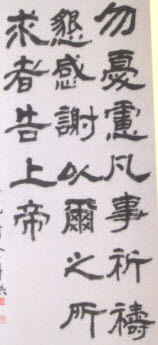 勿憂慮凡事祈禱
懇感謝以爾之所
求者告上帝